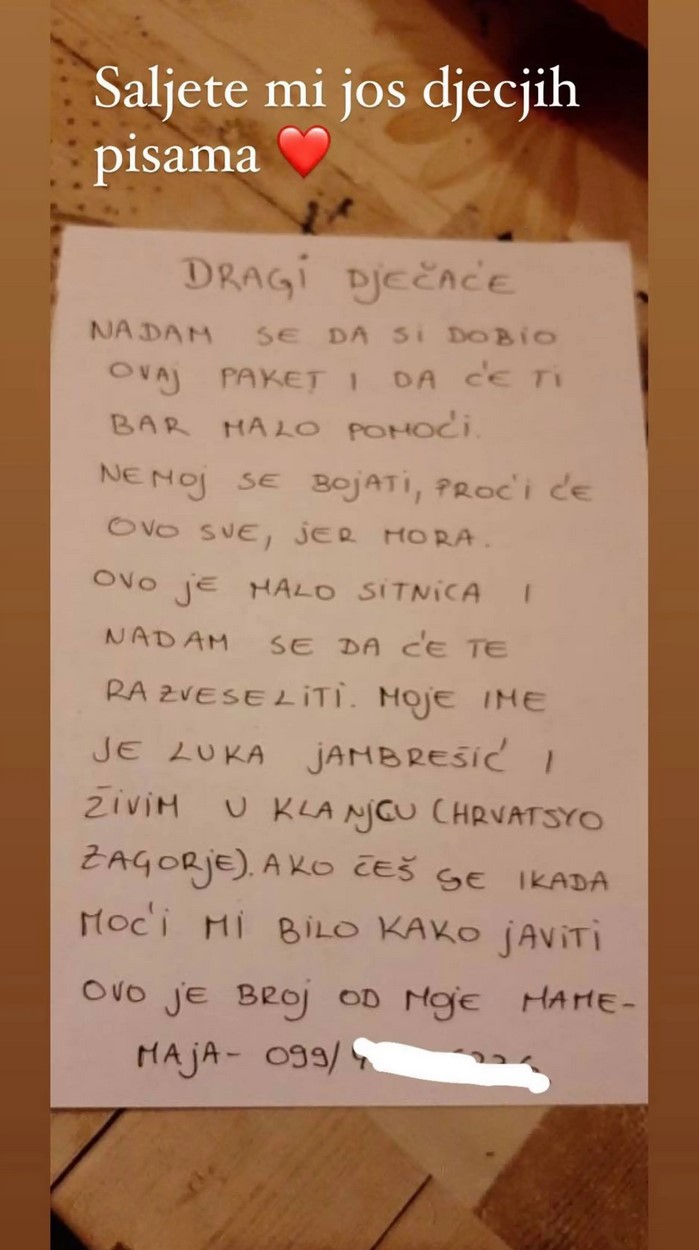 Saljete mi jos djecjih
pisama ❤️
DRAGI DJEČAĆE
NADAM SE DA SI DOBIO
OVAJ PAKET I DA ĆE TI
BAR MALO POMOĆI.
NEMOJ SE BOJATI, PROĆI ĆE
OVO SVE, JER MORA.
OVO JE MALO SITNICA I
NADAM SE DA ĆE TE
RAZVESELITI. MOJE IME
JE LUKA JAMBREŠIĆ I
ŽIVIM U KLANJCU (HRVATSKO
ZAGORJE). AKO ČEŠ SE IKADA
MOĆI MI BILO KAKO JAVITI
OVO JE BROJ OD MOJE MAME-
MAJA- 099/